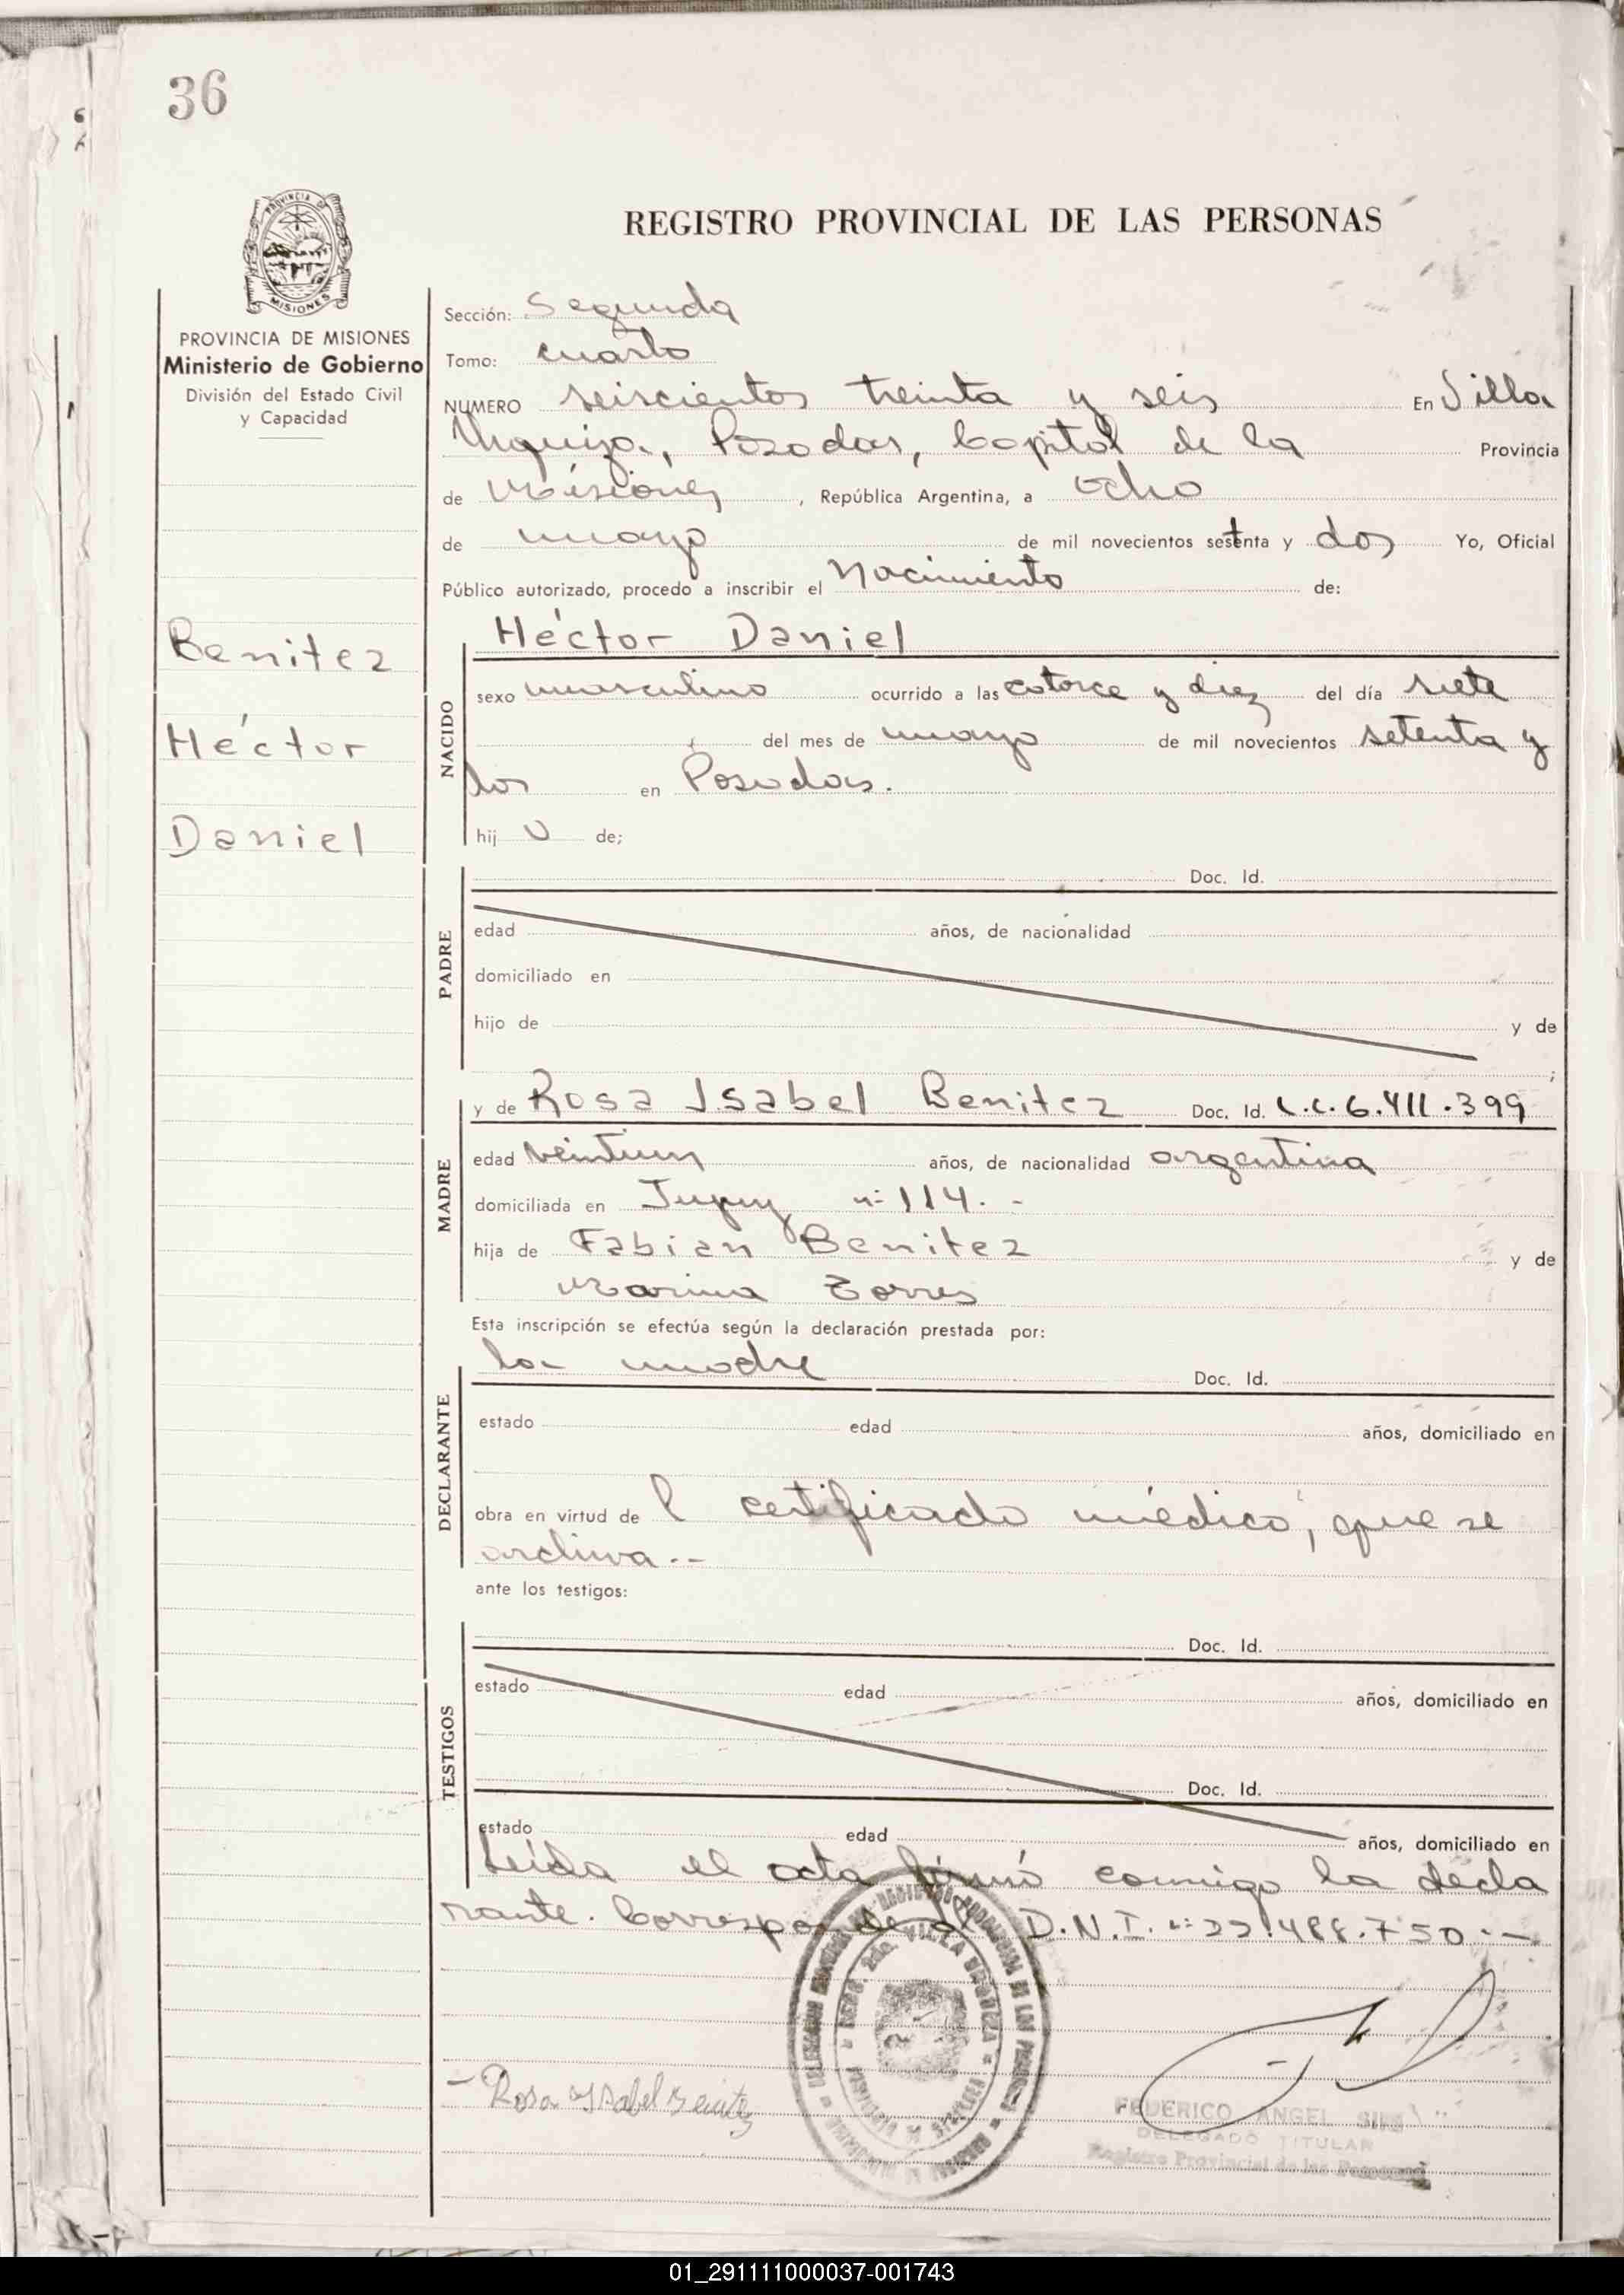 36
PROVINCIA DE MISIONES
REGISTRO PROVINCIAL DE LAS PERSONAS
PROVINCIA DE MISIONES
Ministerio de Gobierno
División del Estado Civil
y Capacidad
Sección: Segunda
Tomo: cuarto
NUMERO seiscientos treinta y seis En Villa
Urquiza, Posadas, Capital de la Provincia
de Misiones, República Argentina, a ocho
de mayo de mil novecientos setenta y dos Yo, Oficial
Público autorizado, procedo a inscribir el Nacimiento de:
Benitez
Héctor
Daniel
NACIDO
Héctor Daniel
sexo masculino ocurrido a las catorce y diez del día siete
del mes de mayo de mil novecientos setenta y
dos en Posadas.
hij o de;
PADRE
Doc. Id.
edad años, de nacionalidad
domiciliado en
hijo de y de
;
MADRE
y de Rosa Isabel Benitez Doc. Id. L.C. 6.411.399
edad veintiun años, de nacionalidad argentina
domiciliada en Jujuy nº 114. -
hija de Fabian Benitez y de
Marina Torres
Esta inscripción se efectúa según la declaración prestada por:
DECLARANTE
la madre Doc. Id.
estado edad años, domiciliado en
obra en virtud de l certificado médico, que se
archiva --
ante los testigos:
TESTIGOS
Doc. Id.
estado edad años, domiciliado en
Doc. Id.
estado edad años, domiciliado en
Leída el acta firmó conmigo la decla
rante. Corresponde al D.N.I. nº 22.488.750.-
VILLA URQUIZA
- Rosa Isabel Benitez
FEDERICO ANGEL
DELEGADO TITULAR
Registro Provincial de las Personas
01_291111000037-001743